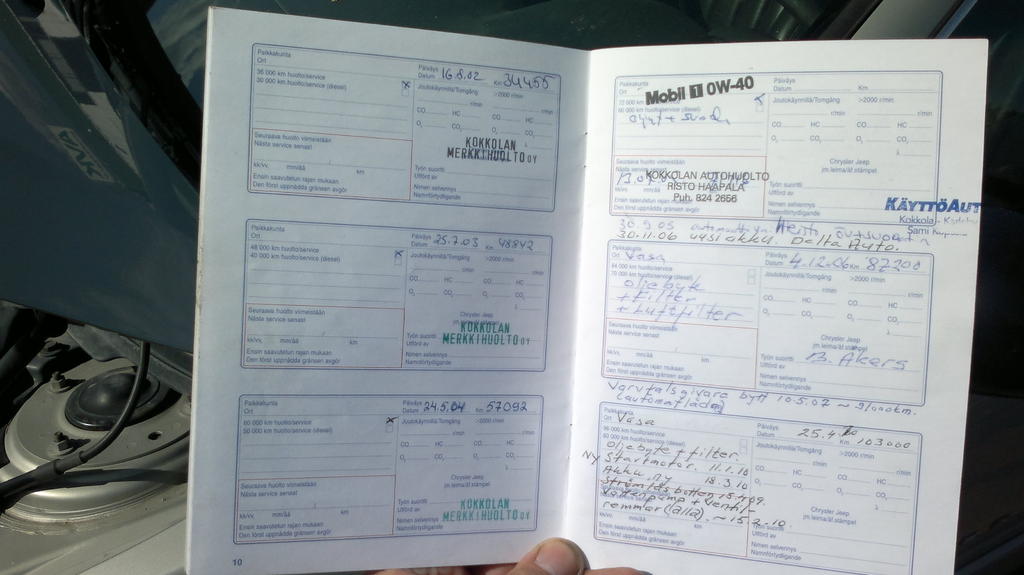 Paikkakunta
Ort
36 000 km huolto/service
30 000 km huolto/service (diesel)
x
Seuraava huolto viimeistään
Nästa service senast
kk/vv. mm/åå km
Ensin saavutetun rajan mukaan
Den först uppnådda gränsen avgör
Päiväys
Datum 16.8.02 Km 34455
Joutokäynnillä/Tomgång >2000 r/min
r/min r/min
CO HC CO HC
O₂ CO₂ O₂ CO₂
KOKKOLAN
MERKKIHUOLTO OY
Työn suoritti
Utförd av
Nimen selvennys
Namnförtydligande
Paikkakunta
Ort
48 000 km huolto/service
40 000 km huolto/service (diesel)
x
Seuraava huolto viimeistään
Nästa service senast
kk/vv. mm/åå km
Ensin saavutetun rajan mukaan
Den först uppnådda gränsen avgör
Päiväys
Datum 25.7.03 Km 48842
Joutokäynnillä/Tomgång >2000 r/min
r/min r/min
CO HC CO HC
O₂ CO₂ O₂ CO₂
Chrysler Jeep
jm.leima/åf.stämpel
KOKKOLAN
MERKKIHUOLTO OY
Työn suoritti
Utförd av
Nimen selvennys
Namnförtydligande
Paikkakunta
Ort
60 000 km huolto/service
50 000 km huolto/service (diesel)
x
Seuraava huolto viimeistään
Nästa service senast
kk/vv. mm/åå km
Ensin saavutetun rajan mukaan
Den först uppnådda gränsen avgör
Päiväys
Datum 24.5.04 Km 57092
Joutokäynnillä/Tomgång >2000 r/min
r/min r/min
CO HC CO HC
O₂ CO₂ O₂ CO₂
Chrysler Jeep
jm.leima/åf.stämpel
KOKKOLAN
MERKKIHUOLTO OY
Työn suoritti
Utförd av
Nimen selvennys
Namnförtydligande
10
Paikkakunta
Ort
Mobil 1 0W-40
72 000 km
60 000 km huolto/service (diesel)
x
Seuraava huolto viimeistään
Nästa service senast
kk/vv. mm/åå km
Ensin saavutetun rajan mukaan
Den först uppnådda gränsen avgör
Päiväys
Datum Km
Joutokäynnillä/Tomgång >2000 r/min
r/min r/min
CO HC CO HC
O₂ CO₂ O₂ CO₂
Chrysler Jeep
jm.leima/åf.stämpel
KOKKOLAN AUTOHUOLTO
RISTO HAAPALA
Puh. 824 2656
Työn suoritti
Utförd av
Nimen selvennys
Namnförtydligande
KÄYTTÖAUT
Kokkola
Sami
30.9.05
30.11.06 uusi akku. Delta Auto.
Paikkakunta
Ort Vasa
84 000 km huolto/service
70 000 km huolto/service (diesel)
oljebyte
+ filter
+ Luftfilter
Seuraava huolto viimeistään
Nästa service senast
kk/vv. mm/åå km
Ensin saavutetun rajan mukaan
Den först uppnådda gränsen avgör
Päiväys
Datum 4.12.06 Km 87200
Joutokäynnillä/Tomgång >2000 r/min
r/min r/min
CO HC CO HC
O₂ CO₂ O₂ CO₂
Chrysler Jeep
jm.leima/åf.stämpel
Työn suoritti
Utförd av B. Akers
Nimen selvennys
Namnförtydligande
Varvtalsgivare bytt 10.5.07
(automatlåda)
Paikkakunta
Ort Vasa
96 000 km huolto/service
80 000 km huolto/service (diesel)
oljebyte + filter
NY Startmotor. 11.1.10
Akku ny 18.3.10
Vattenpump + ventil-
remmar (alla). ~ 15.2.10.
Ensin saavutetun rajan mukaan
Den först uppnådda gränsen avgör
Päiväys
Datum 25.4 Km 103000
Joutokäynnillä/Tomgång >2000 r/min
r/min r/min
CO HC CO HC
O₂ CO₂ O₂ CO₂
Chrysler Jeep
jm.leima/åf.stämpel
Työn suoritti
Utförd av
Nimen selvennys
Namnförtydligande